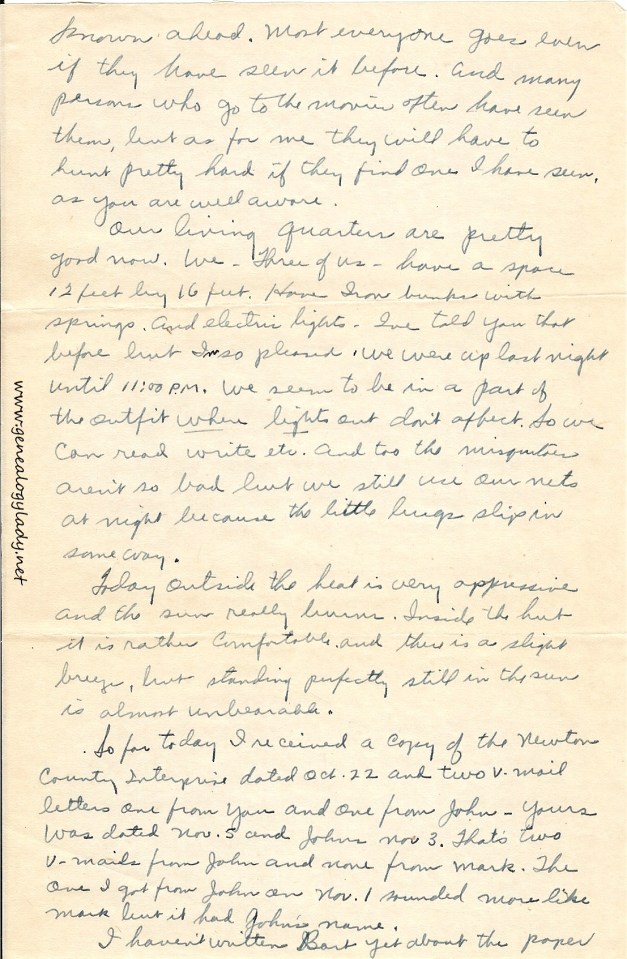 known ahead. Most everyone goes even
if they have seen it before. And many
persons who go to the movies often have seen
them, but as for me they will have to
hunt pretty hard if they find one I have seen,
as you are well aware.
Our living quarters are pretty
good now. We - Three of us - have a space
12 feet by 16 feet. Have Iron bunks with
springs. And electric lights - I've told you that
before but I'm so pleased. We were up last night
until 11:00 P.M. We seem to be in a part of
the outfit where lights out don't affect. So we
can read write etc. And too the misquitoes
aren't so bad but we still use our nets
at night because the little bugs slip in
some way.
Today outside the heat is very oppressive
and the sun really burns. Inside the hut
it is rather comfortable and there is a slight
breeze, but standing perfectly still in the sun
is almost unbearable.
So far today I received a copy of the Newton
County Enterprise dated Oct. 22 and two V-mail
letters one from you and one from John - Yours
was dated Nov. 5 and Johns Nov 3. That's two
V-mails from John and none from Mark. The
one I got from John on Nov. 1 sounded more like
Mark but it had John's name.
I haven't written Bart yet about the paper
www.genealogylady.net